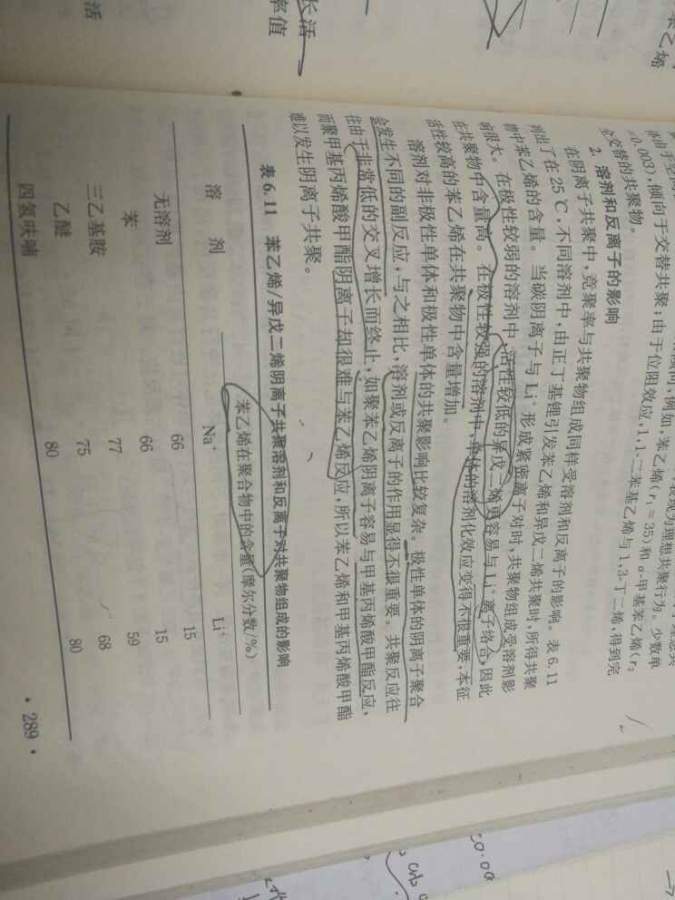 苯乙烯
长活
率值
活
=0.003),倾向于交替共聚;由于位阻效应,1,1-二苯基乙烯与1,3-丁二烯,得到完
全交替的共聚物。
2. 溶剂和反离子的影响
在阴离子共聚中,竞聚率与共聚物组成同样受溶剂和反离子的影响。表 6.11
列出了在 25 ℃,不同溶剂中,由正丁基锂引发苯乙烯和异戊二烯共聚时,所得共聚
物中苯乙烯的含量。当碳阴离子与 Li⁺ 形成紧密离子对时,共聚物组成受溶剂影
响很大。在极性较弱的溶剂中,活性较低的异戊二烯更容易与 Li⁺ 离子络合,因此
在共聚物中含量高。在极性较强的溶剂中,单体的溶剂化效应变得不很重要,本征
活性较高的苯乙烯在共聚物中含量增加。
溶剂对非极性单体和极性单体的共聚影响比较复杂。极性单体的阴离子聚合
会发生不同的副反应,与之相比,溶剂或反离子的作用显得不很重要。共聚反应往
往由于非常低的交叉增长而终止,如聚苯乙烯阴离子容易与甲基丙烯酸甲酯反应,
而聚甲基丙烯酸甲酯阴离子却很难与苯乙烯反应,所以苯乙烯和甲基丙烯酸甲酯
难以发生阴离子共聚。
表 6.11 苯乙烯/异戊二烯阴离子共聚溶剂和反离子对共聚物组成的影响
溶 剂 苯乙烯在聚合物中的含量(摩尔分数/%)
Na⁺ Li⁺
无溶剂 66 15
苯 66 15
三乙基胺 77 59
乙醚 75 68
四氢呋喃 80 80
· 289 ·